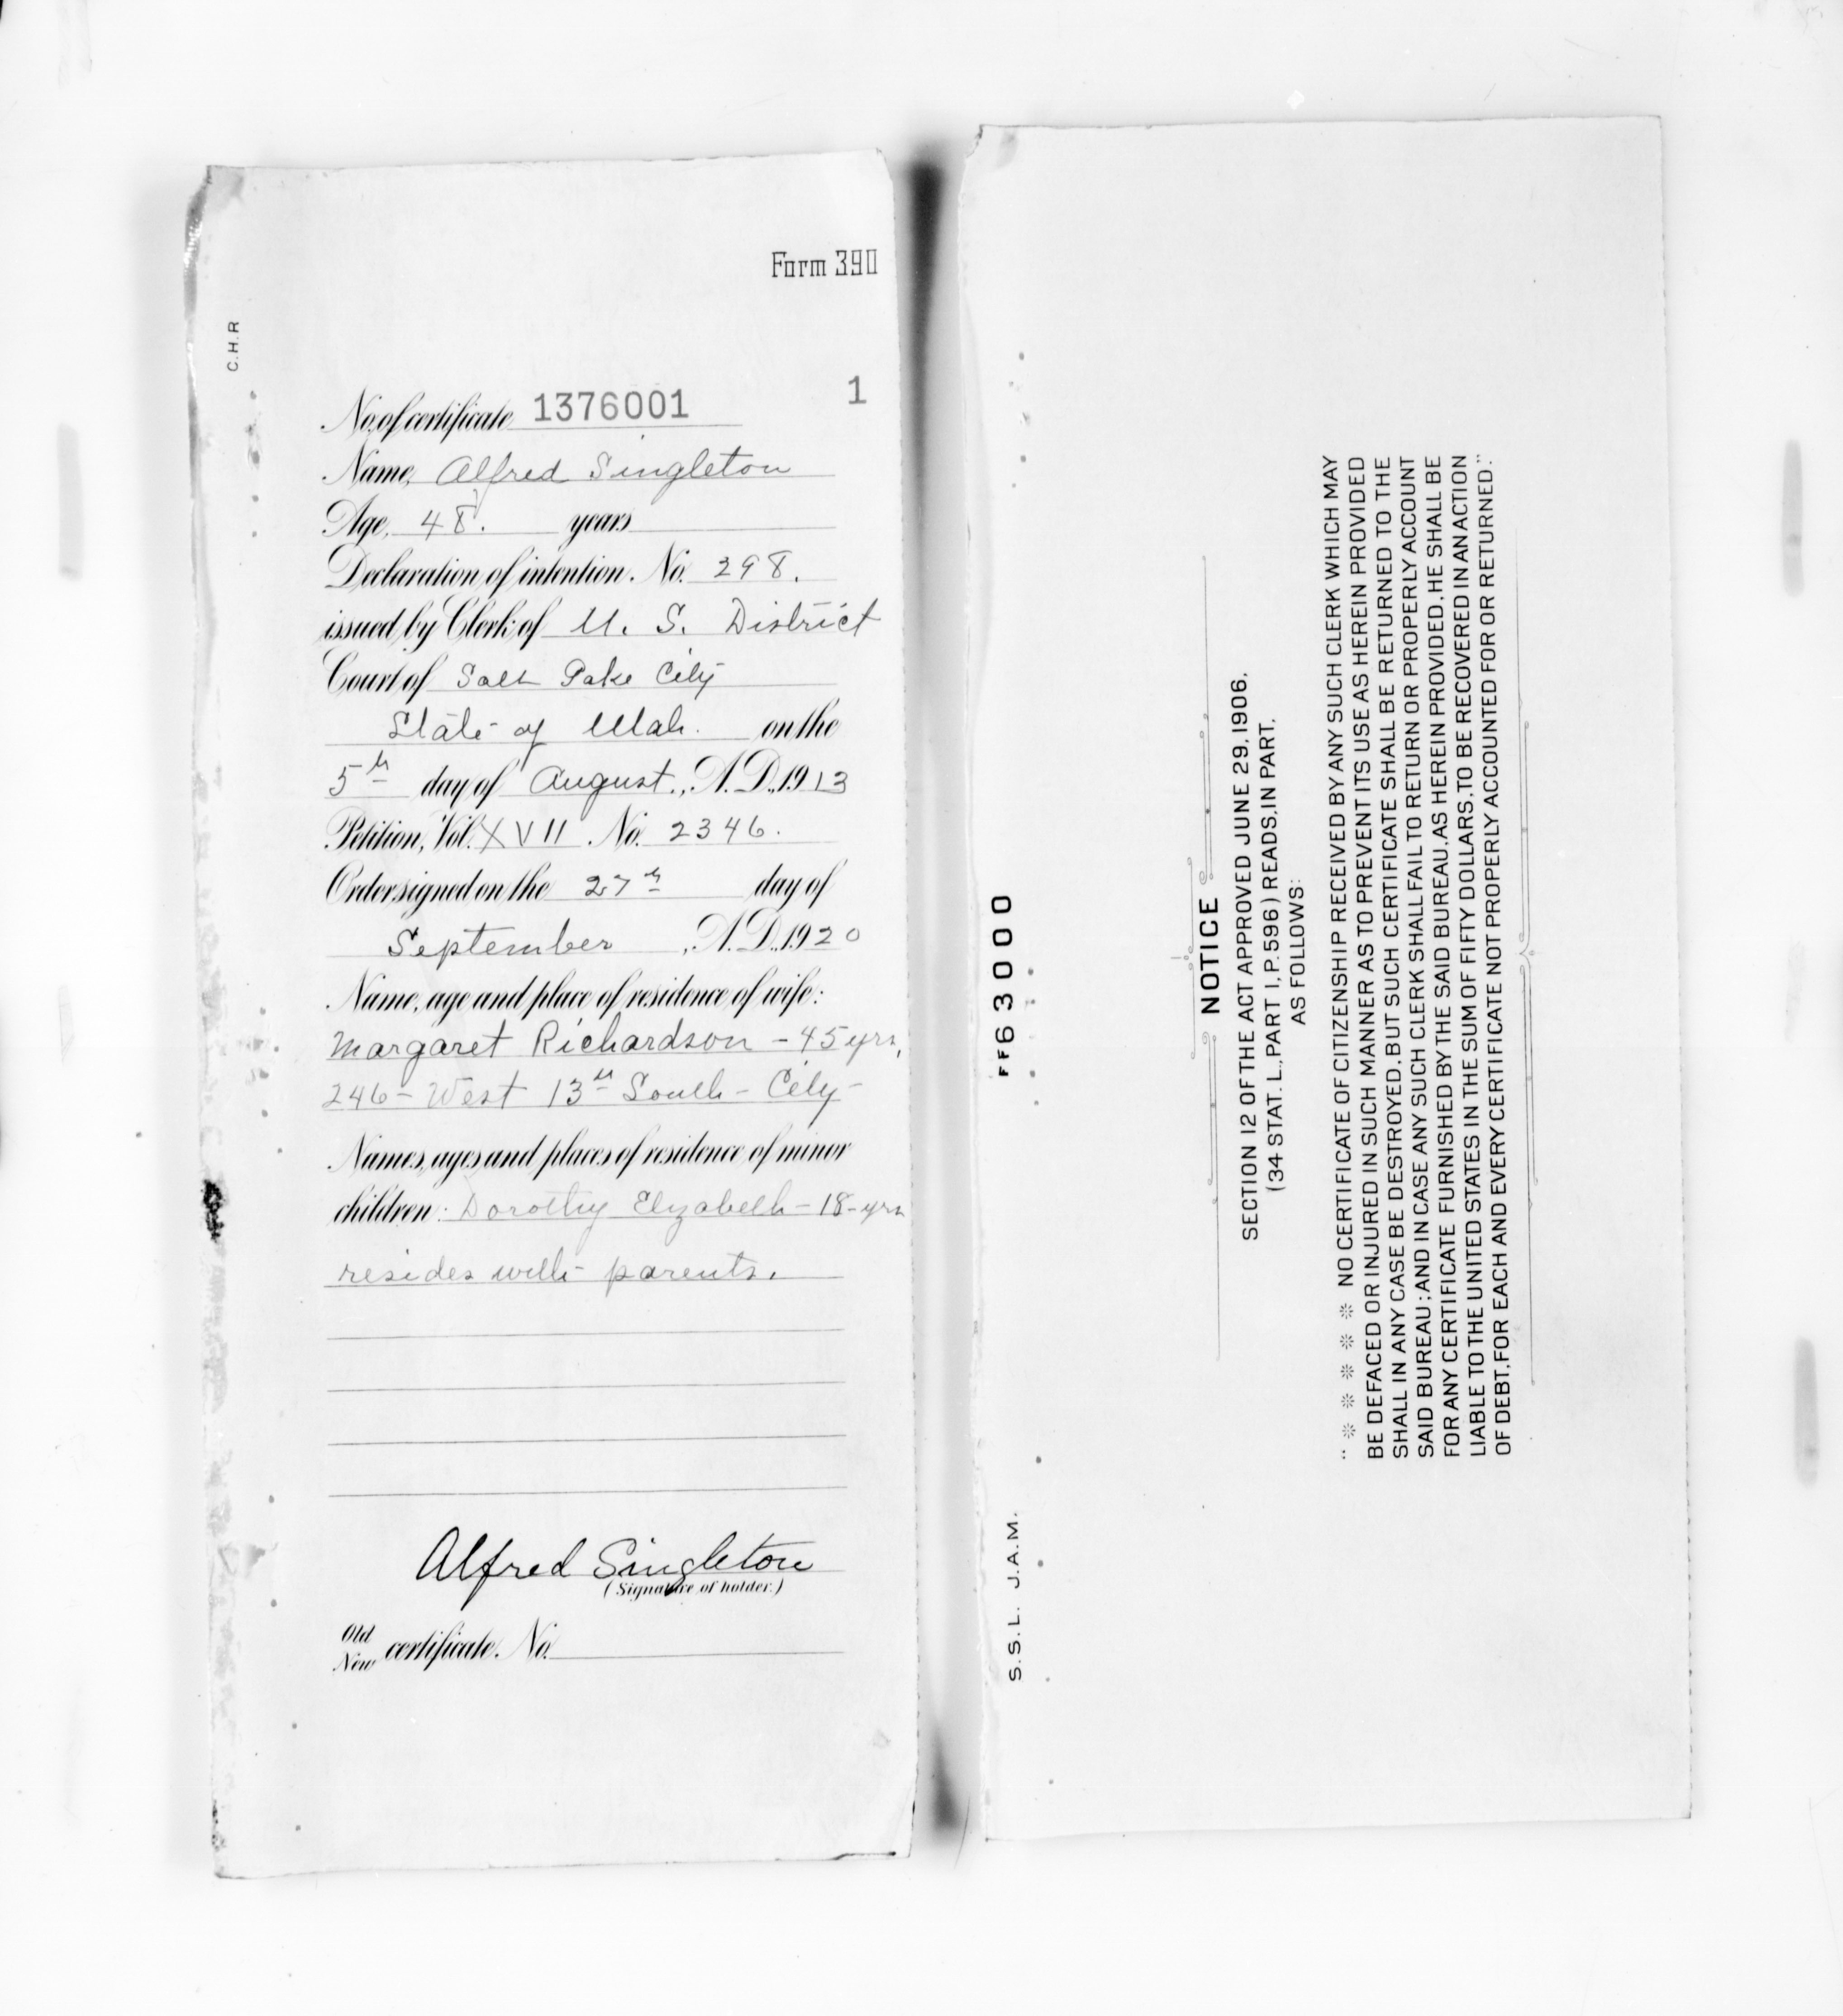 Form 390
C.H.R
No. of certificate 1376001 1
Name, Alfred Singleton
Age, 48. years
Declaration of intention. No. 298.
issued by Clerk of U. S. District
Court of Salt Lake City
State of Utah. on the
5th day of August., A.D. 1913
Petition, Vol. XVII. No. 2346.
Order signed on the 27th day of
September, A.D. 1920
Name, age and place of residence of wife:
Margaret Richardson - 45 yrs,
246 - West 13th South - City -
Names, ages and places of residence of minor
children: Dorothy Elizabeth - 18 - yrs
resides with parents.
Alfred Singleton
(Signature of holder.)
Old
New certificate. No.
FF63000
S.S.L. J.A.M.
NOTICE
SECTION 12 OF THE ACT APPROVED JUNE 29, 1906.
(34 STAT. L., PART I, P. 596) READS, IN PART,
AS FOLLOWS:
" * * * * * NO CERTIFICATE OF CITIZENSHIP RECEIVED BY ANY SUCH CLERK WHICH MAY
BE DEFACED OR INJURED IN SUCH MANNER AS TO PREVENT ITS USE AS HEREIN PROVIDED
SHALL IN ANY CASE BE DESTROYED, BUT SUCH CERTIFICATE SHALL BE RETURNED TO THE
SAID BUREAU; AND IN CASE ANY SUCH CLERK SHALL FAIL TO RETURN OR PROPERLY ACCOUNT
FOR ANY CERTIFICATE FURNISHED BY THE SAID BUREAU, AS HEREIN PROVIDED, HE SHALL BE
LIABLE TO THE UNITED STATES IN THE SUM OF FIFTY DOLLARS, TO BE RECOVERED IN AN ACTION
OF DEBT, FOR EACH AND EVERY CERTIFICATE NOT PROPERLY ACCOUNTED FOR OR RETURNED."